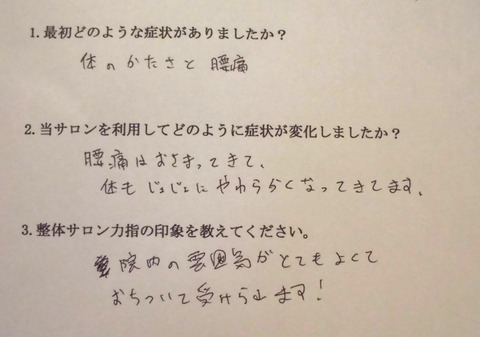 1. 最初どのような症状がありましたか？
体のかたさと 腰痛
2. 当サロンを利用してどのように症状が変化しましたか？
腰痛はおさまってきて、
体も じょじょに やわらかくなってきてます。
3. 整体サロン力指の印象を教えてください。
院内の雰囲気がとてもよくて
おちついて受けられます！